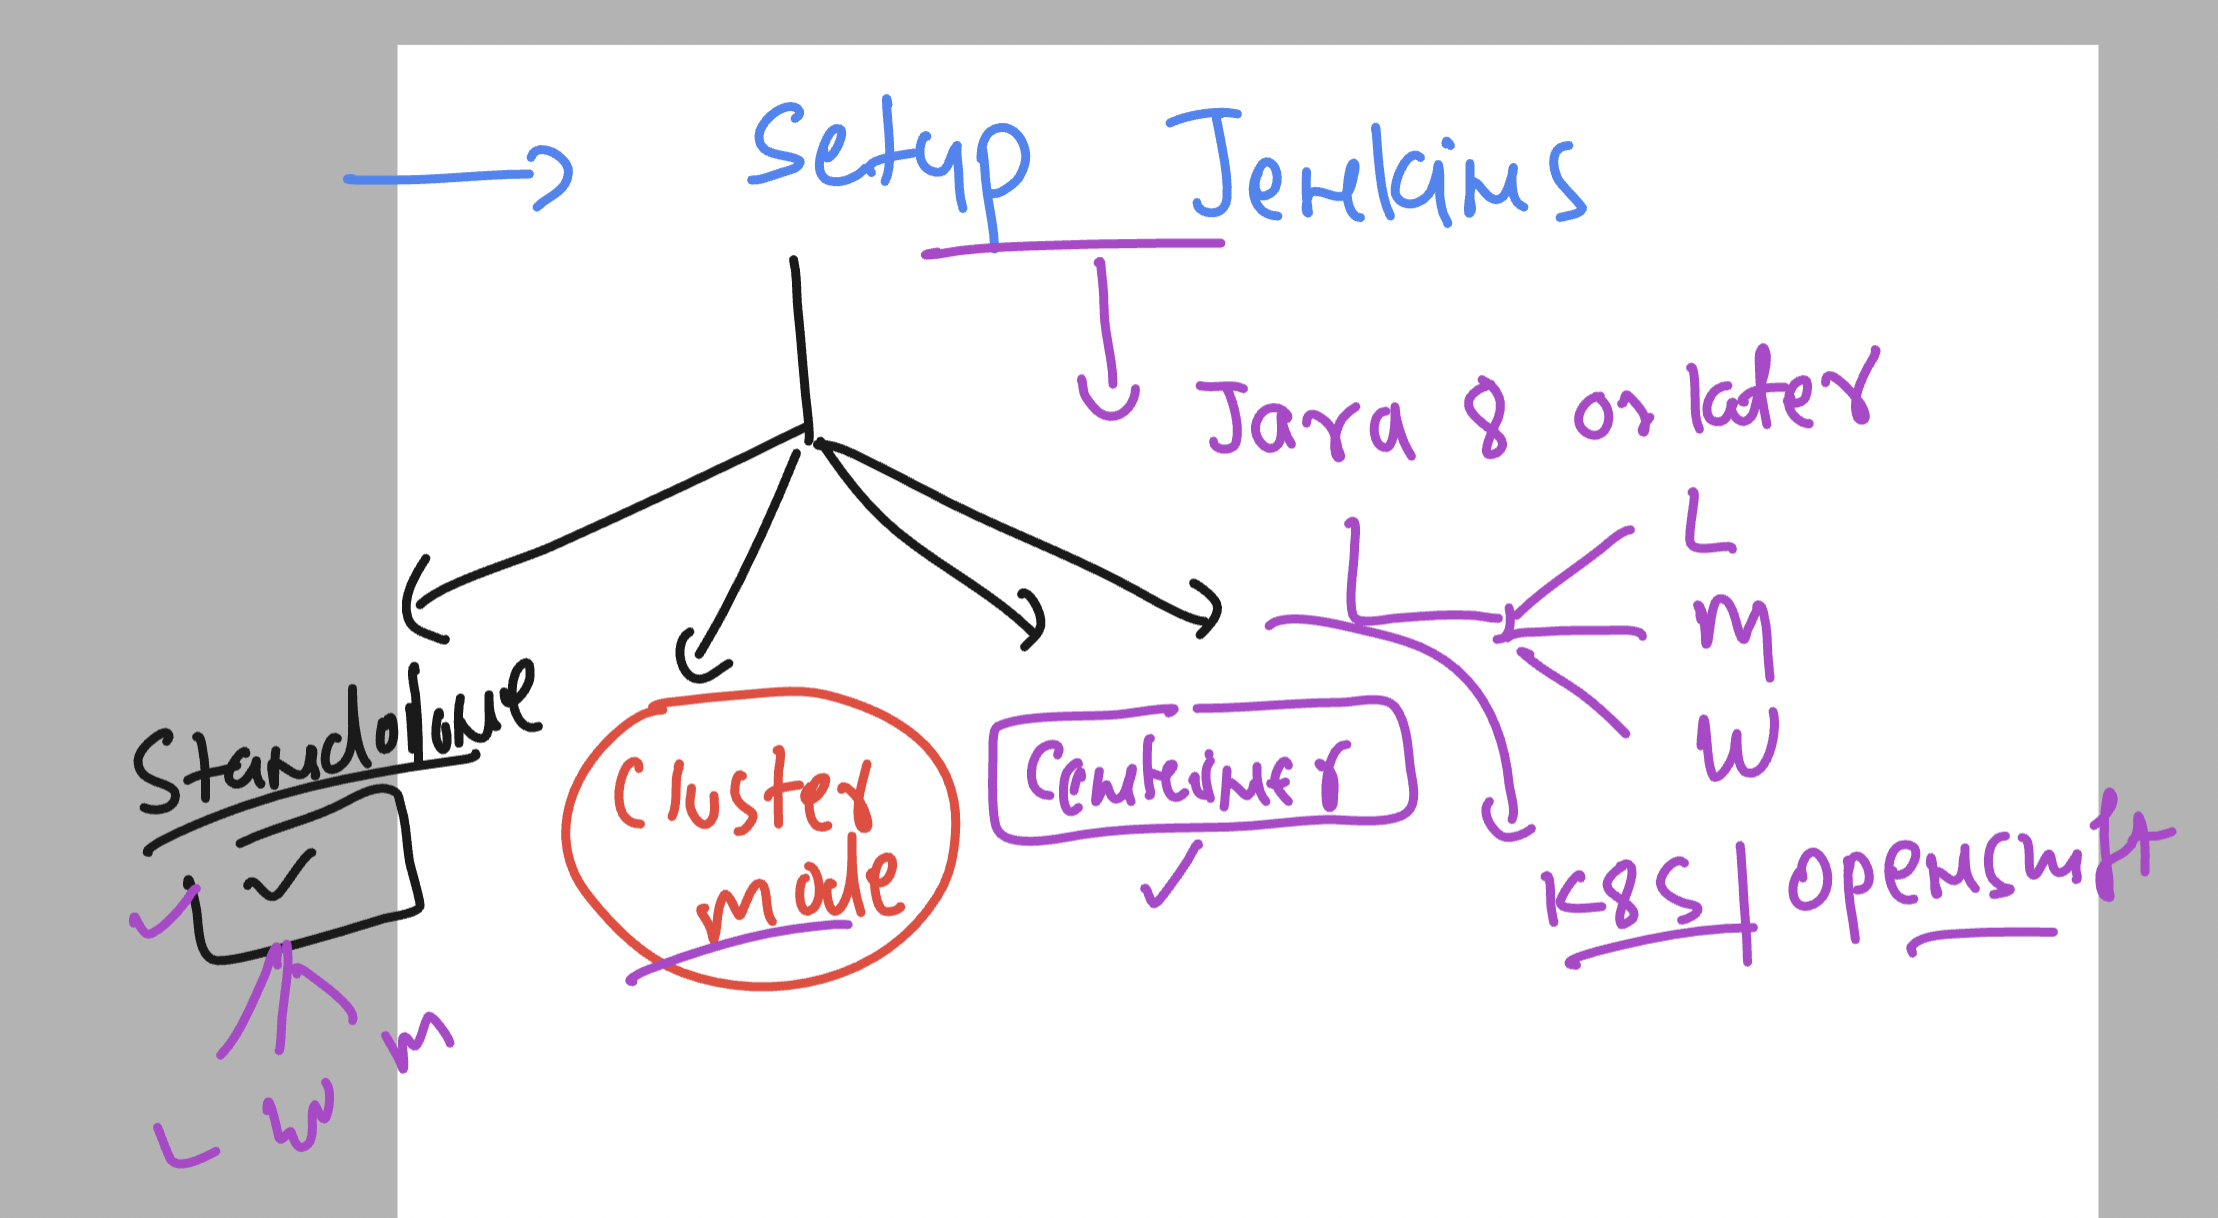 Setup Jenkins
Java 8 or later
L
M
W
Standalone
Cluster
mode
Container
K8S | Openshift
L W M